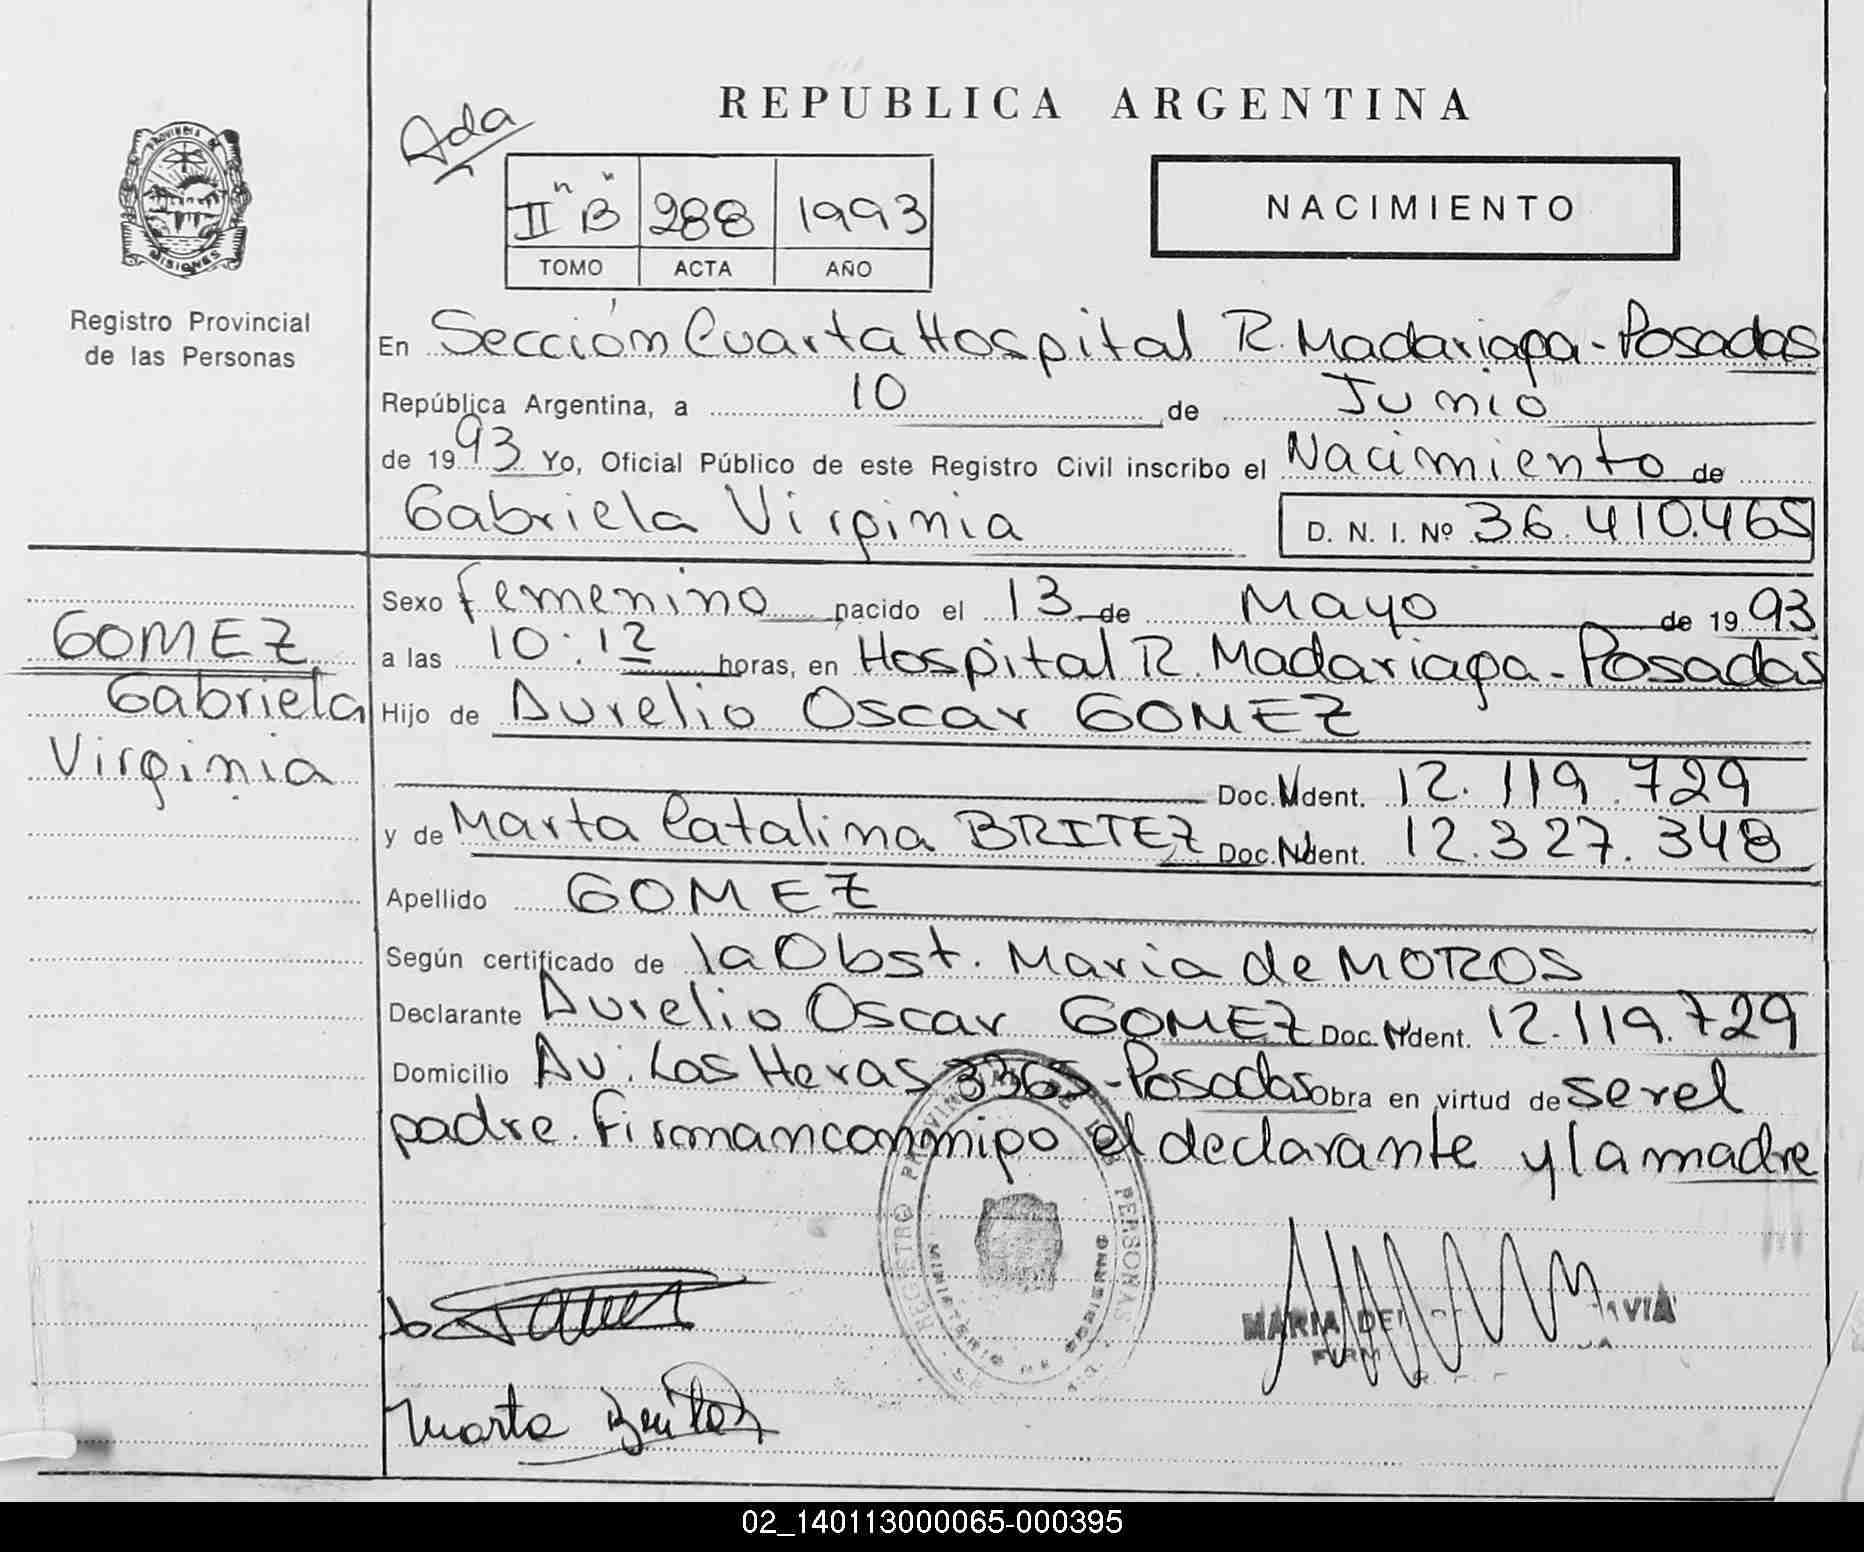 REPUBLICA ARGENTINA
Ada
II "B" 288 1993
TOMO ACTA AÑO
NACIMIENTO
PROVINCIA DE
MISIONES
Registro Provincial
de las Personas
En Sección Cuarta Hospital R. Madariaga - Posadas
República Argentina, a 10 de Junio
de 1993 Yo, Oficial Público de este Registro Civil inscribo el Nacimiento de
Gabriela Virginia D. N. I. Nº 36.410.465
GOMEZ
Gabriela
Virginia
Sexo femenino nacido el 13 de Mayo de 1993
a las 10:12 horas, en Hospital R. Madariaga - Posadas
Hijo de Aurelio Oscar GOMEZ
Doc. Ident. 12.119.729
y de Marta Catalina BRITEZ Doc. Ident. 12.327.348
Apellido GOMEZ
Según certificado de la Obst. Maria de MOROS
Declarante Aurelio Oscar GOMEZ Doc. Ident. 12.119.729
Domicilio Av. Las Heras 3365 - Posadas Obra en virtud de ser el
padre. Firman conmigo el declarante y la madre
REGISTRO PROVINCIAL DE LAS PERSONAS
MINISTERIO DE GOBIERNO
MARIA DEL
Marta Britez
02_140113000065-000395